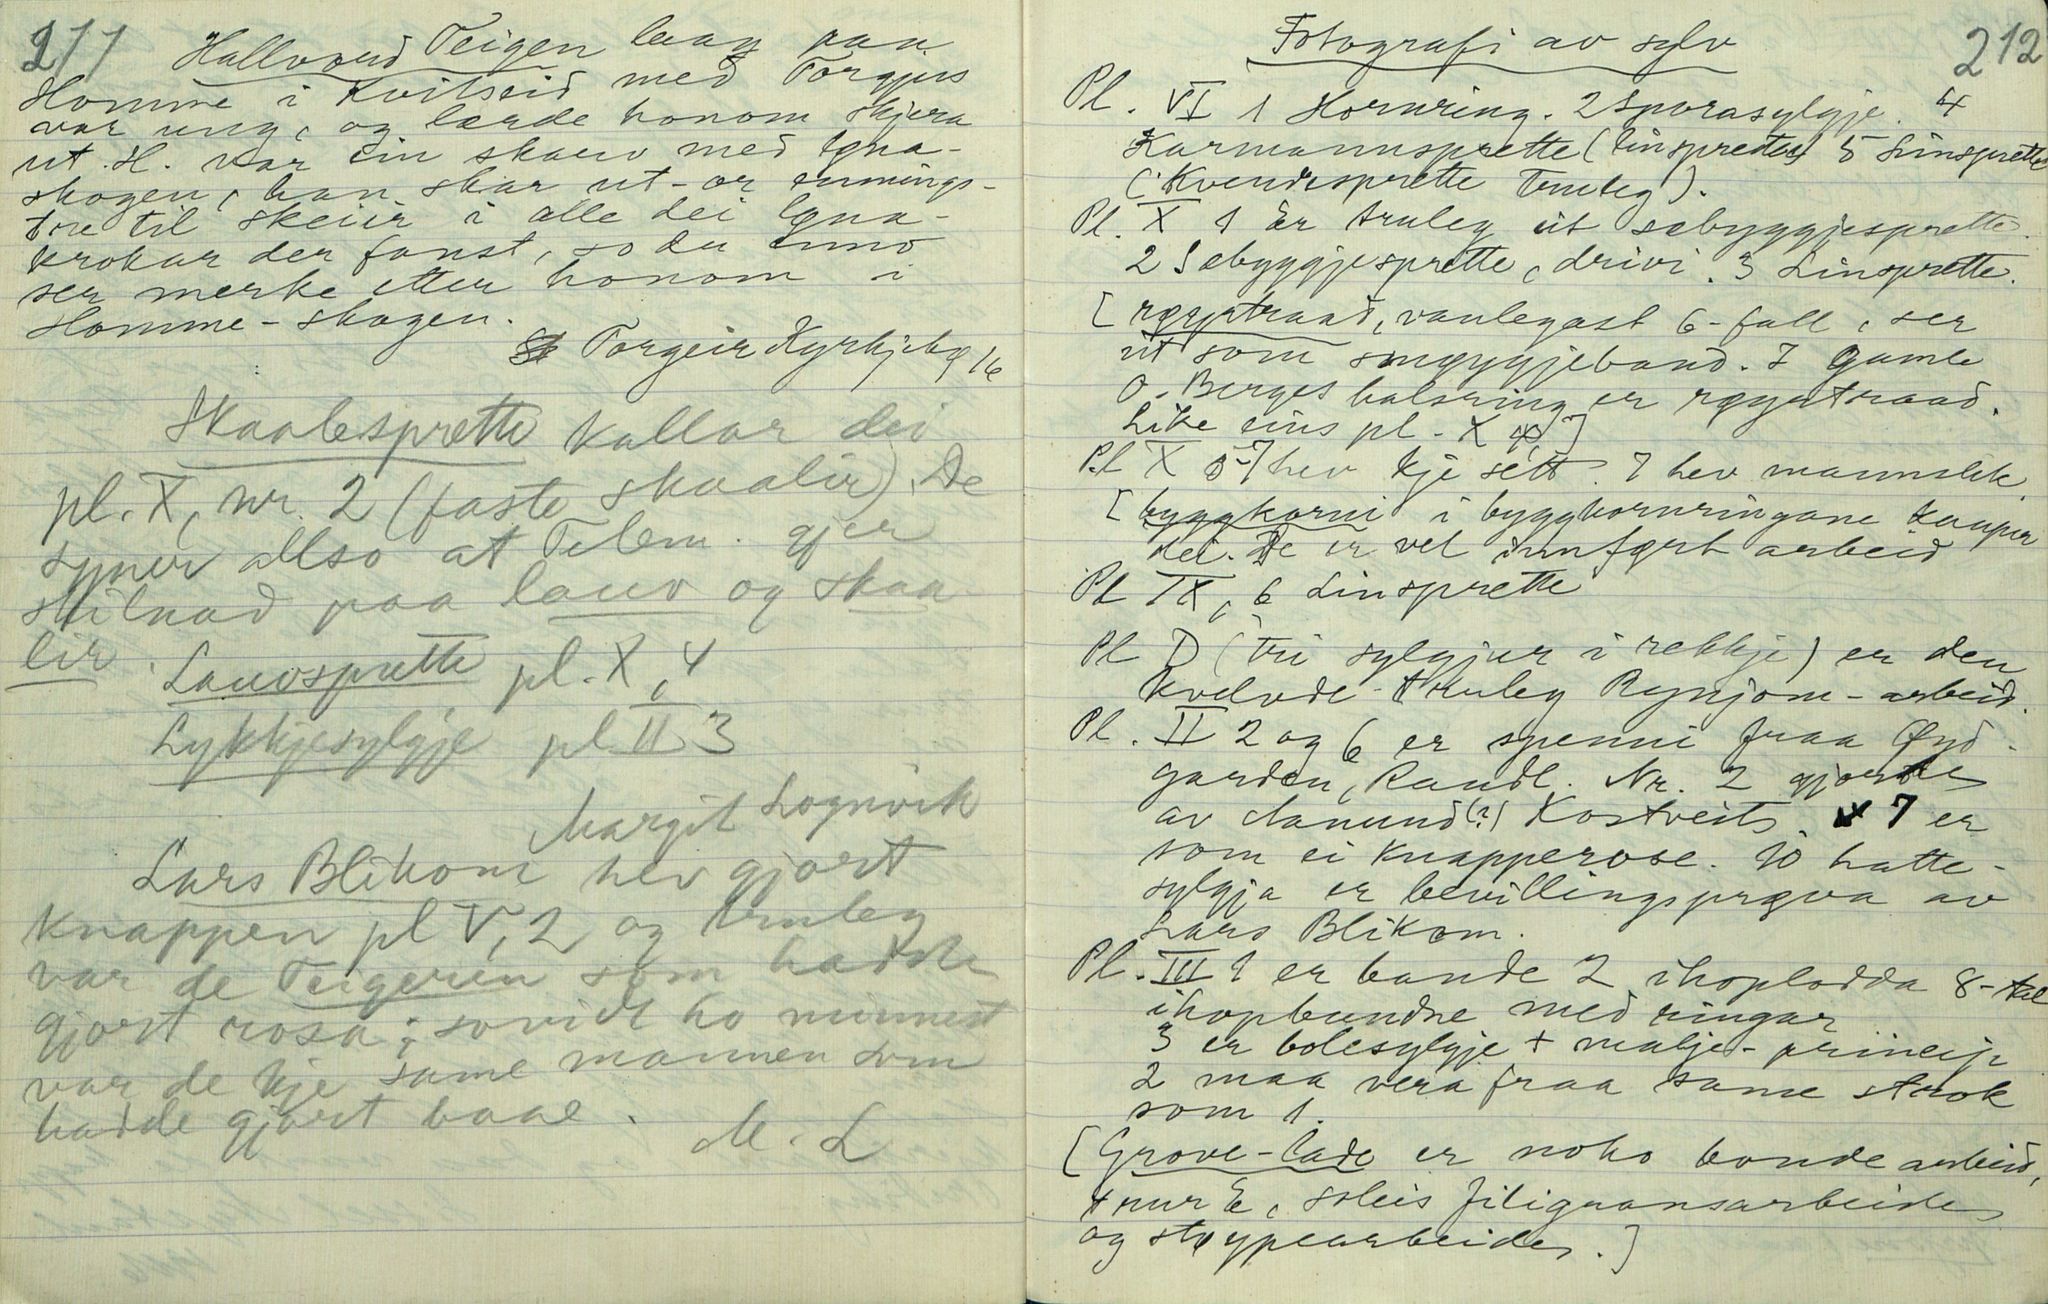 211
Hallvord Teigen laag paa
Homme i Kvitseid med Torgjus
var ung, og lærde honom skjera
ut. H. var ein skauv med Igna-
skogen, han skar ut-or emnings-
tre til skeiir i alle dei Igna-
krokar der fanst, so du enno
ser merke etter honom i
Homme-skogen.
Torgeir Kyrkjebø 16
Skaalesprette kallar dei
pl. X, nr. 2 (faste skaalir). De
syner allso at Telem. gjer
skilnad paa lauv og skaa-
lir.
Lauvsprette pl. X, 4
Lykkjesylgje pl. II 3
Margit Lognvik
Lars Blikom hev gjort
Knappen pl V, 2 og truleg
var de Teigeren som hadde
gjort rosa; sovidt ho minnest
var de kje same mannen som
hadde gjort baae.
M. L
212
Fotografi av sylv
Pl. VI 1 Hornring. 2 Sporasylgje. 4
Karmannsprette (Linsprette) 5 Linsprette
(: Kvendesprette truleg).
Pl. X 1 är truleg üt sæbyggjesprette.
2 Sæbyggjesprette, drivi. 3 Linsprette.
[røyrtraad, vanlegast 6-fall, ser
ut som smøygjeband. I Gamle
O. Berges halsring er røyrtraad.
Like eins pl. X 4]
Pl X 5-7 hev kje sétt. 7 hev mannslik.
[byggkorni i byggkornringane kaupir
dei. De er vel innført arbeid
Pl IX, 6 Linsprette
Pl D (tri sylgjur i rekkje) er den
kvelvde truleg Rynjom-arbeid.
Pl. II 2 og 6 er spenni fraa Øyd-
garden, Raudl. Nr. 2 gjorde
av Aanund(?) Kostveits. 7 er
som ei knapperose. 10 hatte-
sylgja er bevillingsprøva av
Lars Blikom.
Pl. III 1 er bande 2 ihoplodda 8-tal
ihopbundne med ringar
3 er bolesylgje + malje-princip
2 maa vera fraa same strok
som 1.
[Grove-lade er noko bonde arbeid,
+ nur E, soleis filigransarbeide
og støypearbeide.]